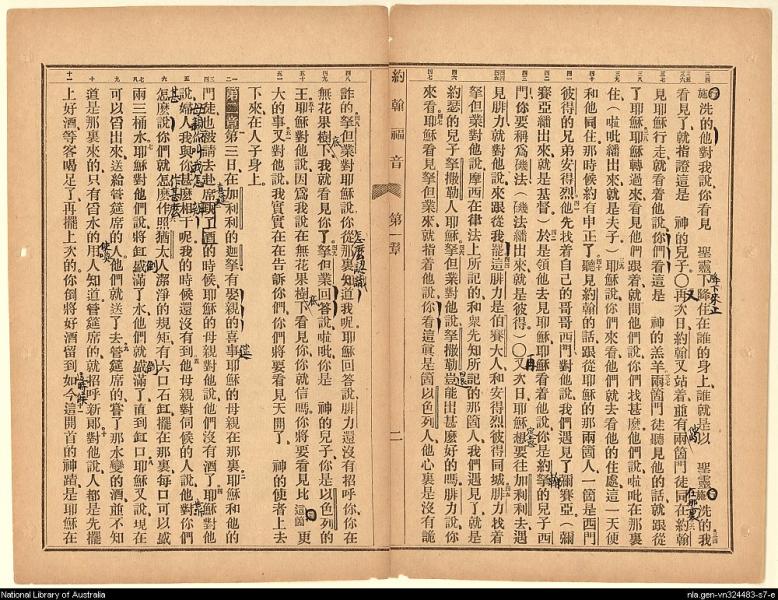 施洗的他對我說你看見　聖靈下降住在誰的身上誰就是以　聖靈施洗的我
看見了就指證這是　神的兒子〇再次日約翰又站着並有兩個門徒同在約翰
見耶穌行走就看着他說你們看這是　神的羔羊兩個門徒聽見他的話就跟從
了耶穌耶穌轉過來看見他們跟着就問他們說你們找甚麼他們說啦吡在那裏
住（啦吡繙出來就是夫子）耶穌說你們來看他們就去看他的住處這一天便
和他同在那時候約有申正了聽見約翰的話跟從耶穌的那兩個人一個是西門
彼得的兄弟安得烈他先找着自己的哥哥西門對他說我們遇見了彌賽亞（彌
賽亞繙出來就是基督）於是領他去見耶穌耶穌看着他說你是約拏的兒子西
門你要稱爲磯法（磯法繙出來就是彼得）〇又次日耶穌想要往加利利去遇
見腓力就對他說來跟從我罷這腓力是伯賽大人和安得烈彼得同城腓力找着
拏但業對他說摩西在律法上所記的和衆先知所記的那個人我們遇見了就是
約瑟的兒子拏撒勒人耶穌拏但業對他說拏撒勒豈能出甚麼好的嗎腓力說你
來看耶穌看見拏但業來就指着他說你看這眞是箇以色列人他心裏是沒有詭
約翰福音　第一章　二
詐的拏但業對耶穌說你從那裏知道我呢耶穌回答說腓力還沒有招呼你你在
無花果樹下我就看見你了拏但業回答說啦吡你是　神的兒子你是以色列的
王耶穌對他說因爲我說在無花果樹下看見你你就信嗎你將要看見比這箇更
大的事又對他說我實實在在告訴你們你們將要看見天開了　神的使者上去
下來在人子身上
第二章第三日在加利利的迦拏有娶親的喜事耶穌的母親在那裏耶穌和他的
門徒也被請去赴席酒用盡的時候耶穌的母親對他說他們沒有酒了耶穌對他
說婦人我與你甚麼相干呢我的時候還沒有到他母親對伺候的人說他對你們
怎麼說你們就怎麼作照猶太人潔淨的規矩有六口石缸擺在那裏每口可以盛
兩三桶水耶穌對他們說將缸盛滿了水他們就盛滿了直到缸口耶穌又說現在
可以舀出來送給管筵席的人他們就送了去管筵席的嘗了那水變的酒並不知
道是那裏來的只有舀水的用人知道管筵席的就招呼新郎對他說人都是先擺
上好酒等客喝足了再擺上次的你倒將好酒留到如今這開首的神蹟是耶穌在
National Library of Australia
nla.gen-vn324483-s7-e